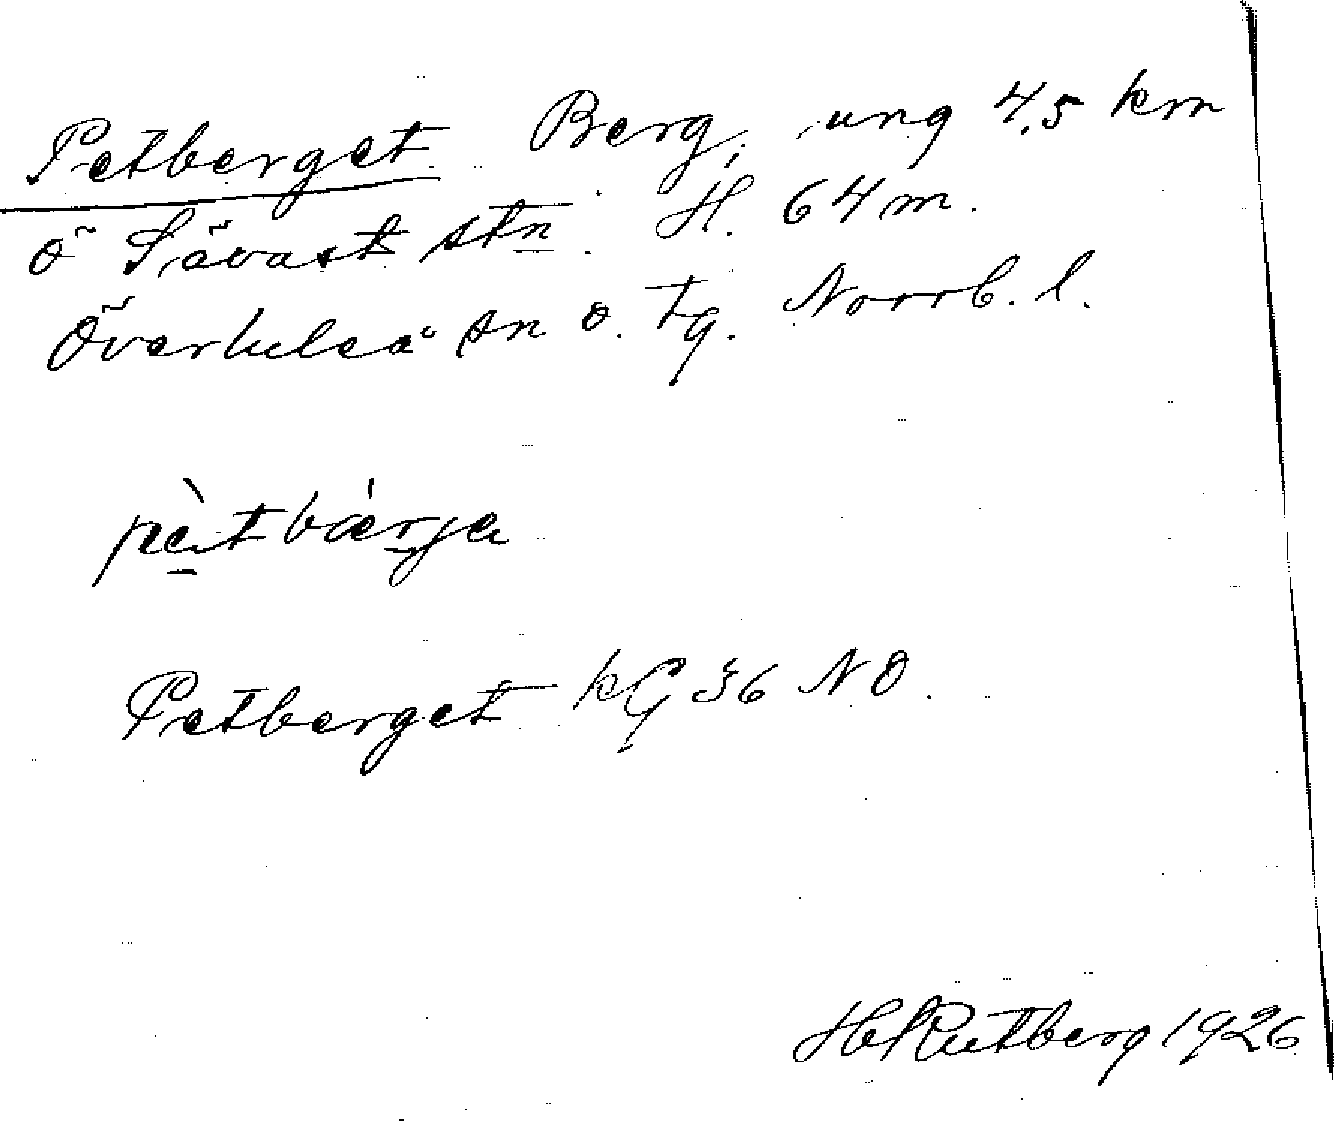 Petberget Berg, ung 4,5 km
ö Sävast stn. H. 64 m.
Överluleå sn o. tg. Norrb. l.
pètbár̲ja
Petberget kG 36 NO.
H Rutberg 1926